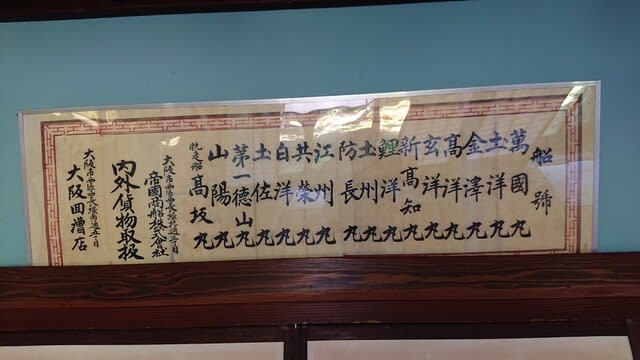 船號
萬國丸
土洋丸
金澤丸
髙洋丸
玄洋丸
新髙知丸
鯉洋丸
土州丸
防長丸
江州丸
共榮丸
白洋丸
土佐丸
第一德山丸
山陽丸
帆走船 髙坂丸
大阪市西區西長堀北通三丁目
帝國商船株式会社
内外貨物取扱
大阪市西區西長堀南通五丁目
大阪回漕店